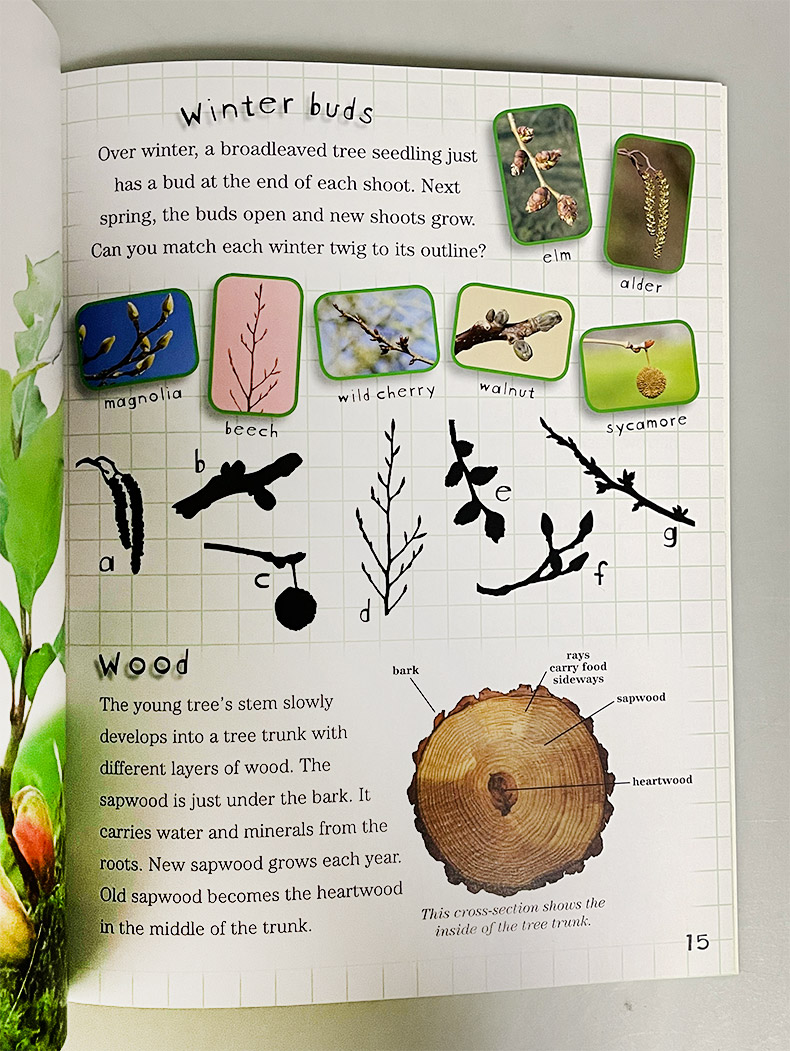 Winter buds
Over winter, a broadleaved tree seedling just
has a bud at the end of each shoot. Next
spring, the buds open and new shoots grow.
Can you match each winter twig to its outline?
elm
alder
magnolia
beech
wild cherry
walnut
sycamore
a
b
c
d
e
f
g
Wood
The young tree's stem slowly
develops into a tree trunk with
different layers of wood. The
sapwood is just under the bark. It
carries water and minerals from the
roots. New sapwood grows each year.
Old sapwood becomes the heartwood
in the middle of the trunk.
bark
rays
carry food
sideways
sapwood
heartwood
This cross-section shows the
inside of the tree trunk.
15